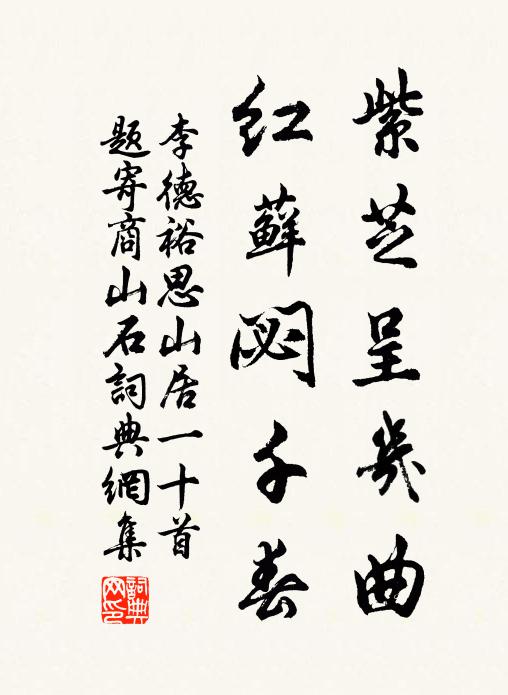 紫芝呈几曲
红藓閟千春
李德裕思山居一十首
题寄商山石词典网集
词典网印